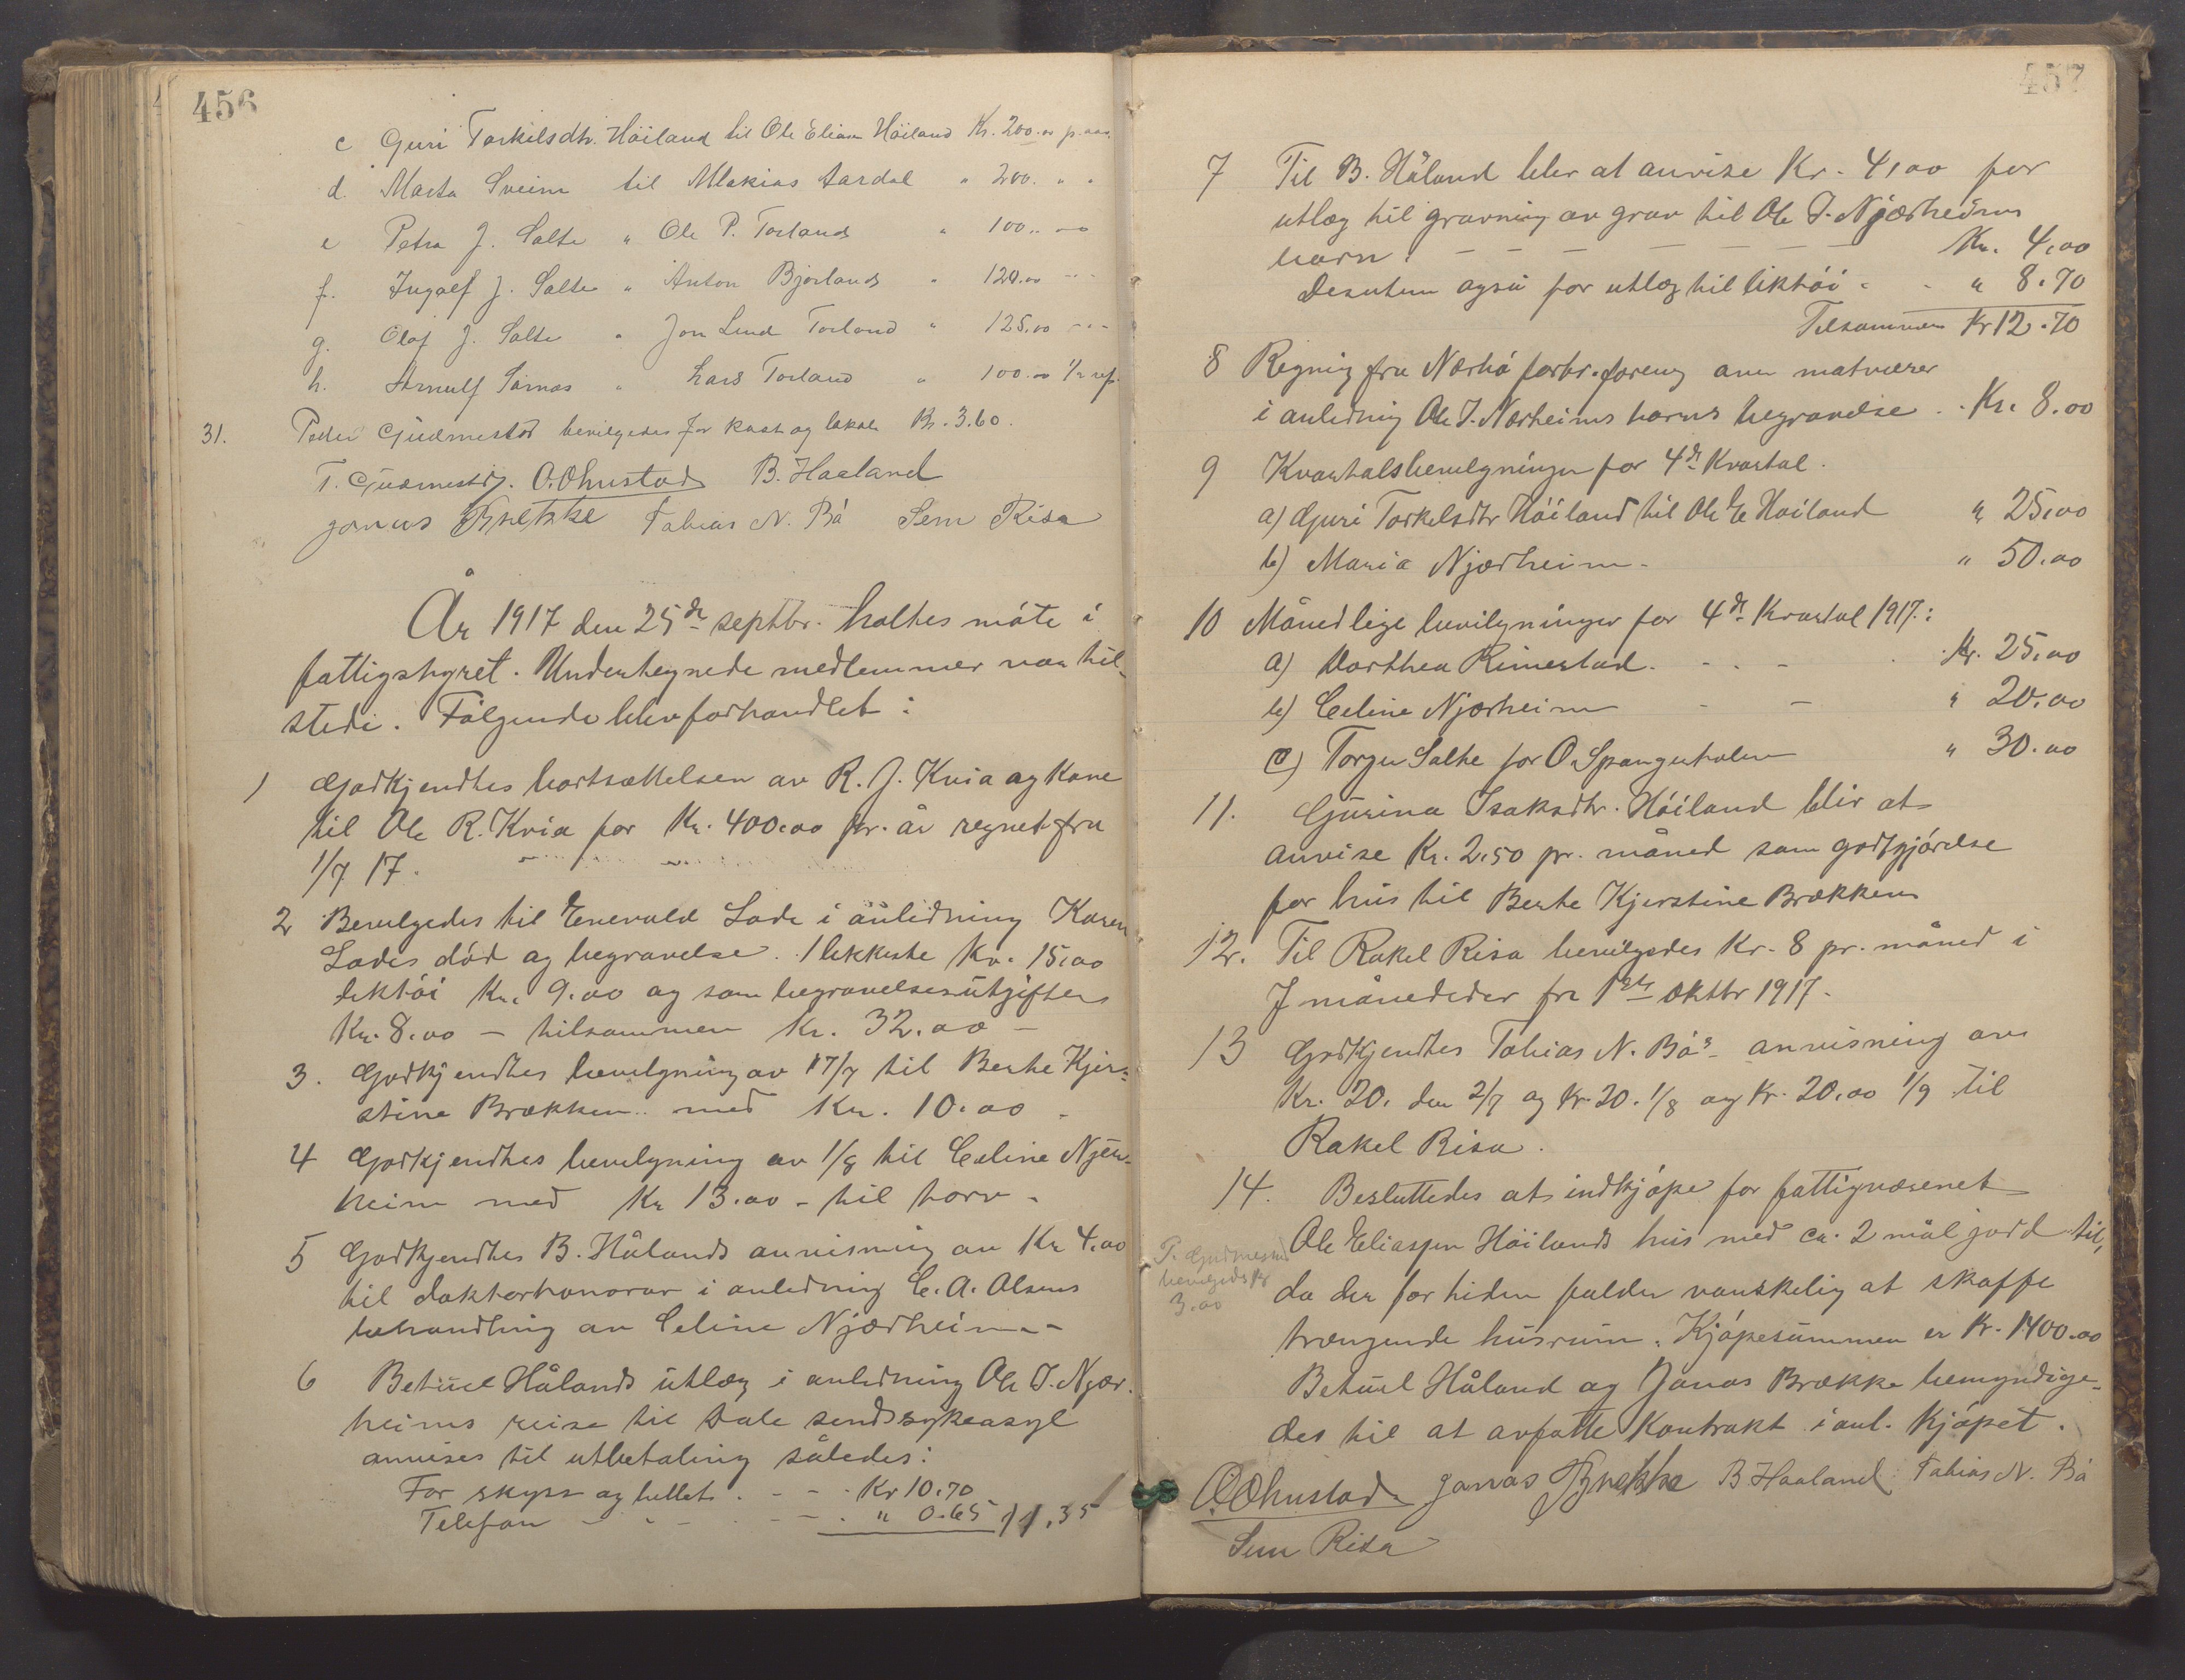 456
c Guri Torkilsdtr. Höiland til Ole Elias Höiland Kr. 200.00 p. aar.
d. Marta Sveim til Malakias Aardal " 200. " "
e Petra J. Salte " Ole P. Torland " 100.. -"
f. Ingolf J. Salte " Anton Bjorland " 120.00 - -
g. Olaf J. Salte " Jon Lund Torland " 125.00 - -
h. Arnulf Særnes " Lars Torland " 100.00
31. Peder Gudmestad bevilgedes for kost og lokale Kr. 3.60.
T. Gudmestad. O. Ohnstad B. Haaland
Jonas Brekke Tobias N. Bø Sem Risa
År 1917 den 25de septbr. holtes møte i
fattigstyret. Undertegnede medlemmer var til-
stede. Følgende blev forhandlet:
1 Godkjendtes bortsættelsen av R. J. Kvia og Kone
til Ole R. Kvia for Kr. 400.00 pr. år regnet fra
1/7 17.
2 Bevilgedes til Enevald Lode i anledning Karen
Lodes död og begravelse. 1 likkiste Kr. 15,00
liktöi Kr. 9.00 og som begravelsesutgifter
Kr. 8.00 — tilsammen Kr. 32.00 —
3. Godkjendtes bevilgning av 17/7 til Berte Kjer-
stine Brækken.. med Kr. 10.00 -
4 Godkjendtes bevilgning av 1/8 til Celine Njær-
heim med Kr 13.00 - til torv -
5 Godkjendtes B. Hålands anvisning av Kr 4.00
til doktorhonorar i anledning C. A. Olsens
behandling av Celine Njærheim -
6 Betuel Hålands utlæg i anledning Ole T. Njær-
heims reise til Dale sindssykeasyl
anvises til utbetaling således:
For skyss og billet. - - . Kr 10.70
Telefon - - - - - . " 0.65 11.35
457
7 Til B. Håland blir at anvise Kr. 4,00 for
utlæg til gravning av grav til Ole T. Njærheims
barn. - - - - - - Kr. 4,00
Desuten også for utlæg til liktöi - - " 8.70
Tilsammen Kr 12.70
8 Regning fra Nærbö forbr. forening over matvarer
i anledning Ole T. Nærheims barns begravelse . . Kr. 8.00
9 Kvartalsbevilgninger for 4de Kvartal.
a) Guri Torkelsdtr Höiland til Ole E Höiland " 25,00
b) Maria Njærheim - " 50.00
10 Månedlige bevilgninger for 4de Kvartal 1917.:
a) Dorthea Rimestad. - - - . Kr. 25,00
b) Celine Njærheim - - " 20.00
c) Torger Salte for O. Spangerholen " 30.00
11. Gurina Isaksdtr. Höiland blir at
anvise Kr. 2.50 pr. måned som godtgjörelse
for hus til Berte Kjerstine Brækken
12. Til Rakel Risa bevilgedes Kr. 8 pr. måned i
7 månededer fra 1ste oktbr 1917.
13 Godkjendtes Tobias N. Bö's anvisning av
Kr. 20. den 2/7 og Kr. 20. 1/8 og Kr. 20.00 1/9 til
Rakel Risa.
14. Besluttedes at indkjöpe for fattigvæsenet
Ole Eliassen Höilands hus med ca. 2 mål jord til,
P. Gudmestad
bevilgedes Kr
3.00
da der for tiden falder vanskelig at skaffe
trængende husrum. Kjöpesummen er Kr. 1400.00
Betuel Håland og Jonas Brække bemyndige-
des til at avfatte Kontrakt i anl. Kjöpet.
O. Ohnstad. Jonas Brekke B Haaland Tobias N. Bø
Sem Risa